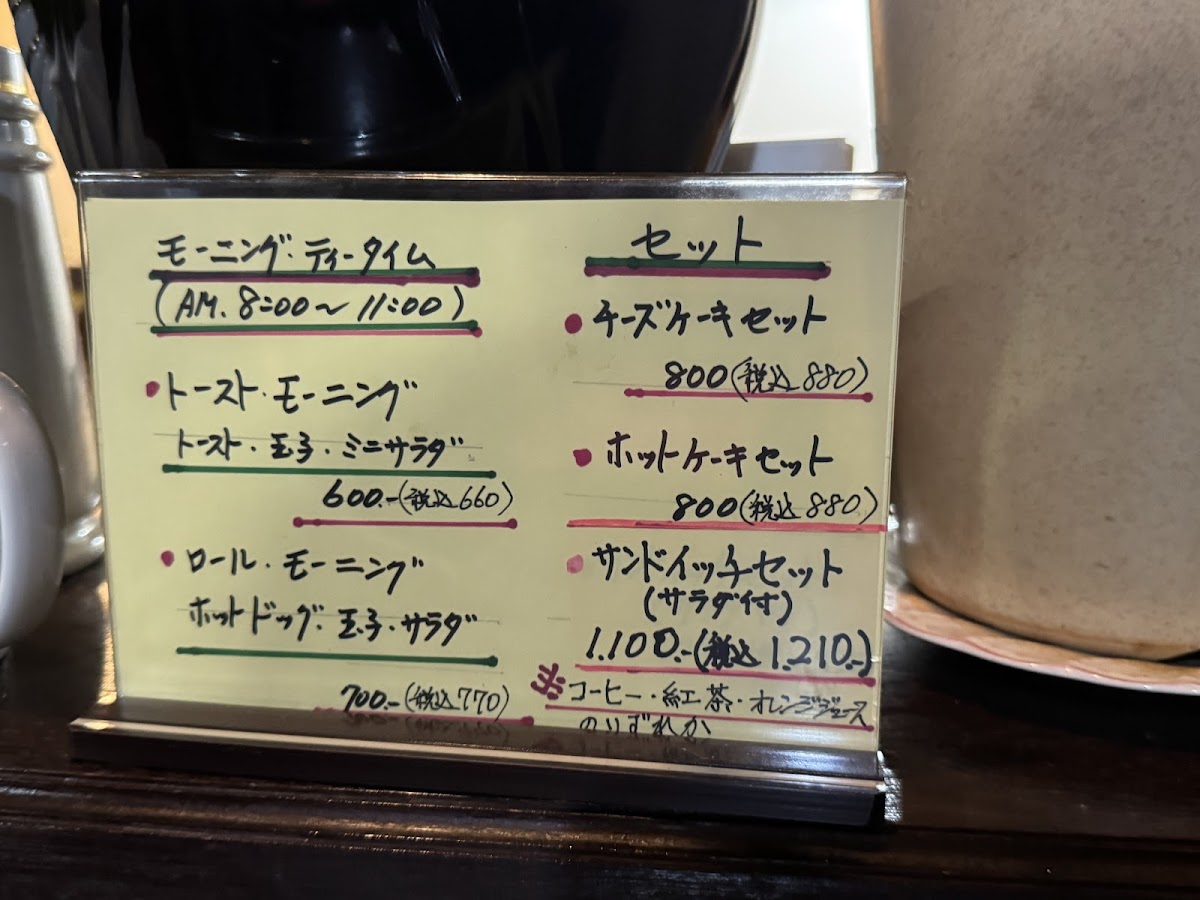 モーニング・ティータイム
(AM. 8:00～11:00)
・トースト・モーニング
トースト・玉子・ミニサラダ
600.-(税込660)
・ロール・モーニング
ホットドッグ・玉子・サラダ
700.-(税込770)
セット
・チーズケーキセット
800(税込880)
・ホットケーキセット
800(税込880)
・サンドイッチセット
(サラダ付)
1.100.-(税込1.210.-)
※コーヒー・紅茶・オレンジジュース
のいずれか